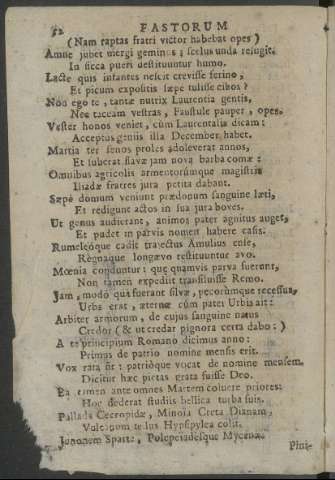 52 FASTORUM
(Nam raptas fratri victor habebat opes)
Amne jubet mergi geminos; scelus unda refugit:
In sicca pueri destituuntur humo.
Lacte quis infantes nescit crevisse ferino,
Et picum expositis sæpe tulisse cibos?
Non ego te, tantæ nutrix Laurentia gentis,
Nec taceam vestras, Faustule pauper, opes.
Vester honos veniet, cùm Laurentalia dicam:
Acceptus geniis illa December habet.
Martia ter senos proles adoleverat annos,
Et suberat flavæ jam nova barba comæ:
Omnibus agricolis armentorúmque magistris
Iliadæ fratres jura petita dabant.
Sæpè domum veniunt prædonum sanguine læti,
Et redigunt actos in sua jura boves.
Ut genus audierant, animos pater agnitus auget,
Et pudet in parvis nomen habere casis.
Rumeleóque cadit trajectus Amulius ense,
Regnaque longævo restituuntur avo.
Mœnia conduntur: quæ quamvis parva fuerunt,
Non tamen expediit transiluisse Remo.
Jam, modò quà fuerant silvæ, pecorúmque recessus,
Urbs erat, æternæ cùm pater Urbis ait:
Arbiter armorum, de cujus sanguine natus
Credor (& ut credar pignora certa dabo:)
A te principium Romano dicimus anno:
Primus de patrio nomine mensis erit.
Vox rata fit: patrióque vocat de nomine mensem.
Dicitur hæc pietas grata fuisse Deo.
Et tamen ante omnes Martem coluere priores:
Hoc dederat studiis bellica turba suis.
Pallada Cecropidæ, Minoia Creta Dianam,
Vulcanum tellus Hypsipylea colit.
Junonem Sparte, Pelopeiadesque Mycenæ.
Pini-